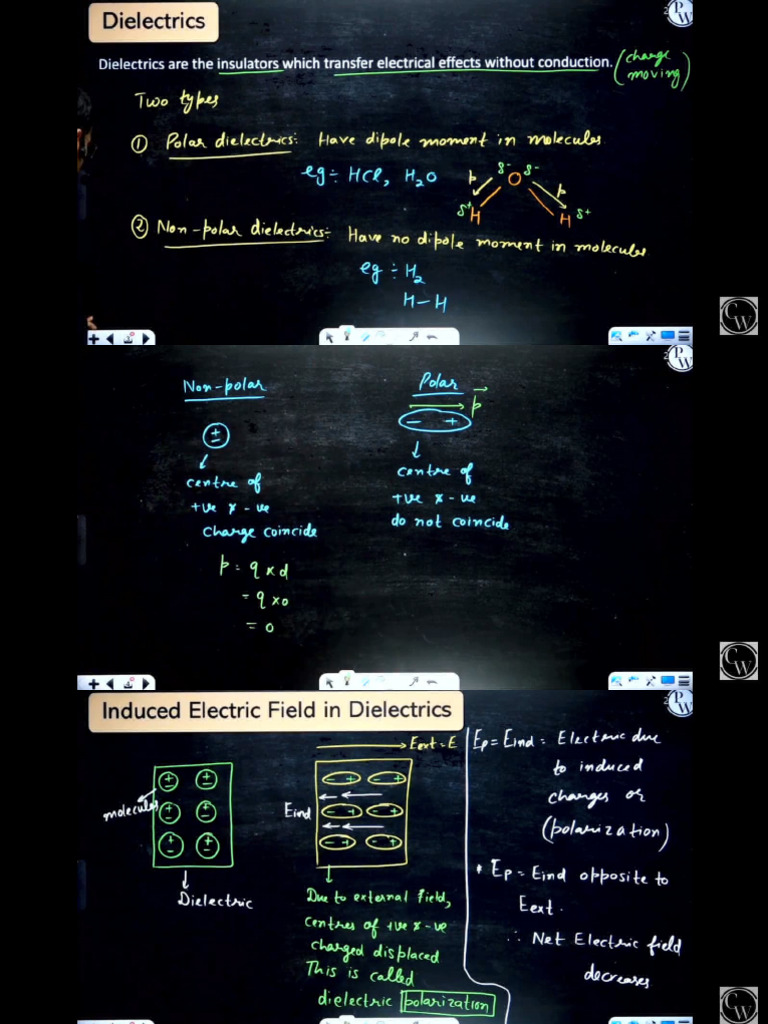 Dielectrics
PW
Dielectrics are the insulators which transfer electrical effects without conduction. (charge
moving)
Two types
① Polar dielectrics: Have dipole moment in molecules.
eg ÷ HCl, H₂O
δ⁻ O δ⁻
p p
δ⁺ H H δ⁺
② Non-polar dielectrics:- Have no dipole moment in molecules
eg ÷ H₂
H-H
CW
PW
Non-polar Polar
p
±
- +
centre of
+ve & -ve
charge coincide
centre of
+ve & -ve
do not coincide
p = q x d
= q x 0
= 0
CW
PW
Induced Electric Field in Dielectrics
molecules
Dielectric
Eext = E
Eind
Due to external field,
centres of +ve & -ve
charged displaced
This is called
dielectric polarization
Ep = Eind = Electric due
to induced
charges or
(polarization)
• Ep = Eind opposite to
Eext.
∴ Net Electric field
decreases
CW